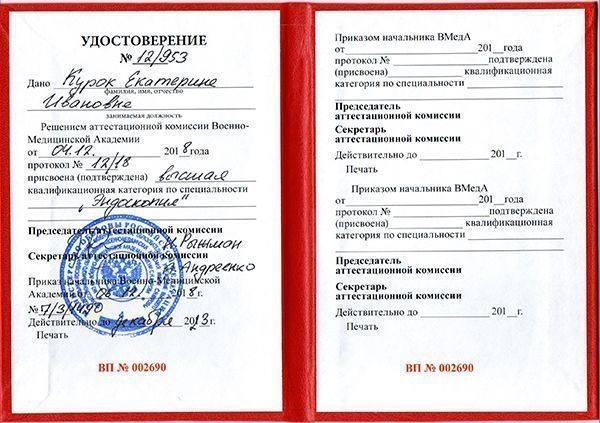 УДОСТОВЕРЕНИЕ
№ 12/953
Дано Курок Екатерине
фамилия, имя, отчество
Ивановне
занимаемая должность
Решением аттестационной комиссии Военно-
Медицинской Академии
от 04.12. 2018 года
протокол № 12/18
присвоена (подтверждена) высшая
квалификационная категория по специальности
„Эндоскопия"
Председатель аттестационной комиссии
Рыжман
Секретарь аттестационной комиссии
Андреенко
Приказ начальника Военно-Медицинской
Академии от 06.12. 2018 г.
№
Действительно до декабря 2023 г.
Печать
ВП № 002690
Приказом начальника ВМедА
от 201__года
протокол № подтверждена
(присвоена) квалификационная
категория по специальности
Председатель
аттестационной комиссии
Секретарь
аттестационной комиссии
Действительно до 201__г.
Печать
Приказом начальника ВМедА
от 201__года
протокол № подтверждена
(присвоена) квалификационная
категория по специальности
Председатель
аттестационной комиссии
Секретарь
аттестационной комиссии
Действительно до 201__г.
Печать
ВП № 002690